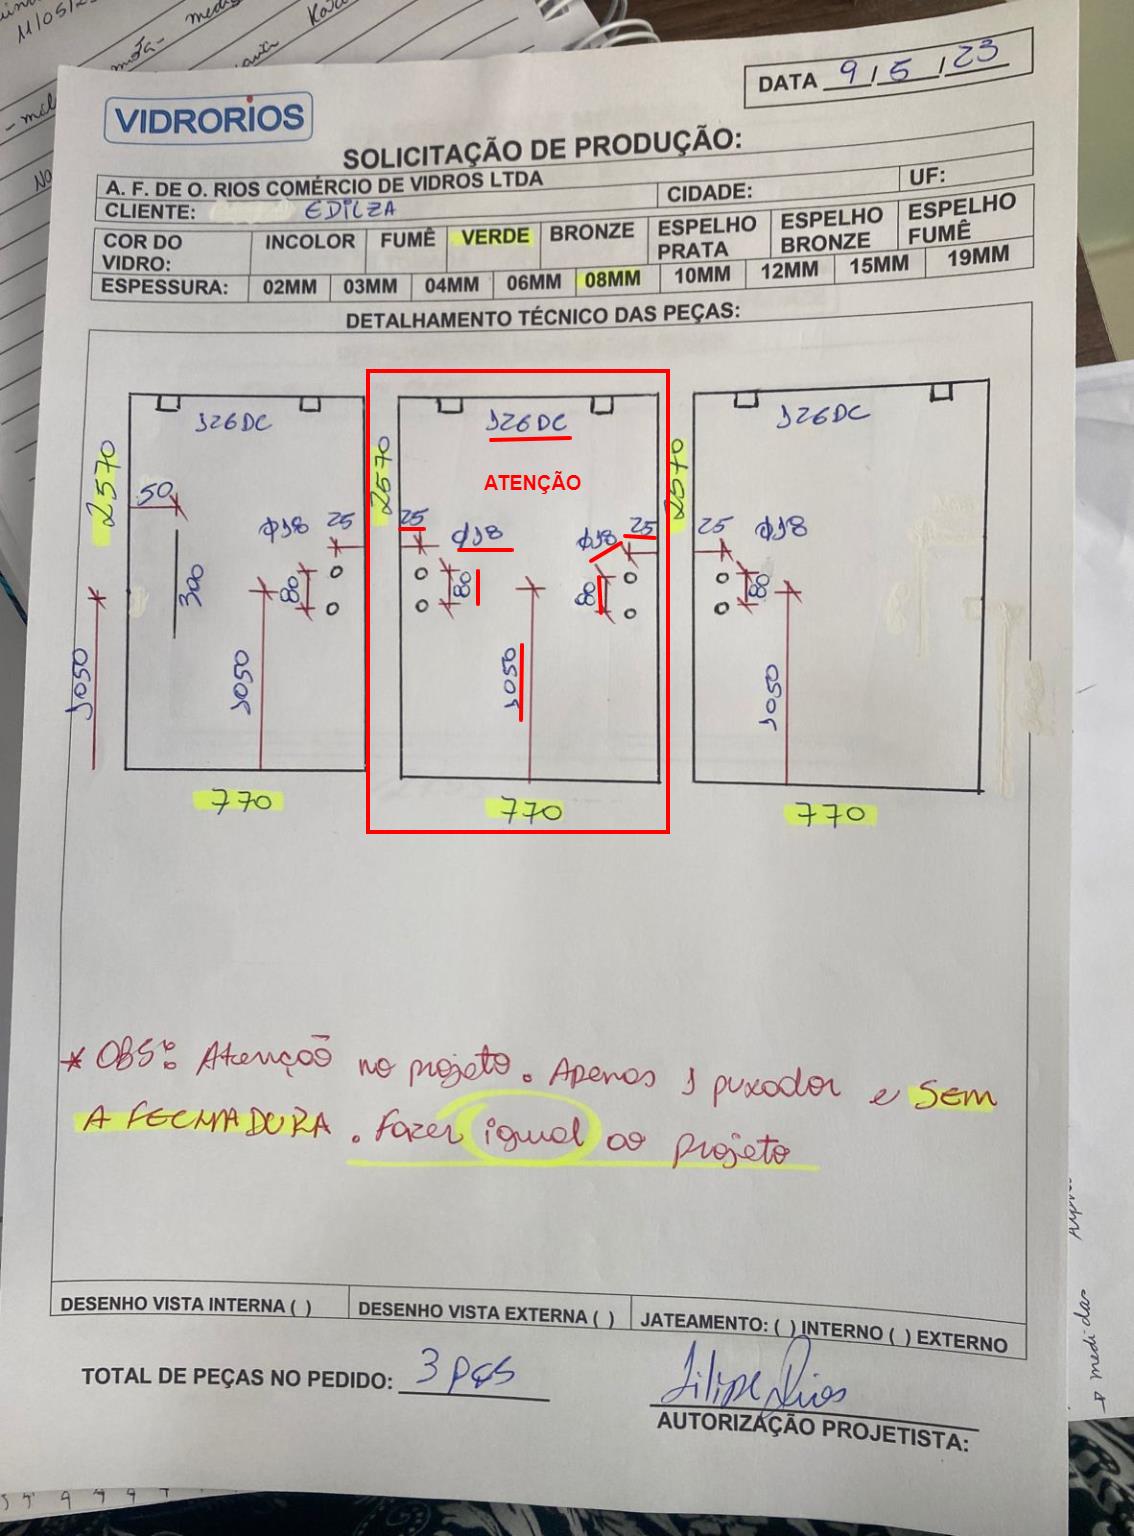 11/05/2
DATA 9 / 5 / 23
VIDRORIOS
SOLICITAÇÃO DE PRODUÇÃO:
A. F. DE O. RIOS COMÉRCIO DE VIDROS LTDA CIDADE: UF:
CLIENTE: EDILZA
COR DO VIDRO: INCOLOR FUMÊ VERDE BRONZE ESPELHO PRATA ESPELHO BRONZE ESPELHO FUMÊ
ESPESSURA: 02MM 03MM 04MM 06MM 08MM 10MM 12MM 15MM 19MM
DETALHAMENTO TÉCNICO DAS PEÇAS:
126DC 126DC 126DC
2570 2570 ATENÇÃO 2570
50 Ø18 25 25 Ø18 Ø18 25 25 Ø18
300 80 80 80 80
1050 1050 1050 1050
770 770 770
* OBS: Atenção no projeto. Apenas 1 puxador e SEM
A FECHADURA. Fazer igual ao projeto
DESENHO VISTA INTERNA ( ) DESENHO VISTA EXTERNA ( ) JATEAMENTO: ( ) INTERNO ( ) EXTERNO
TOTAL DE PEÇAS NO PEDIDO: 3 pçs
Filipe Rios
AUTORIZAÇÃO PROJETISTA:
medidas